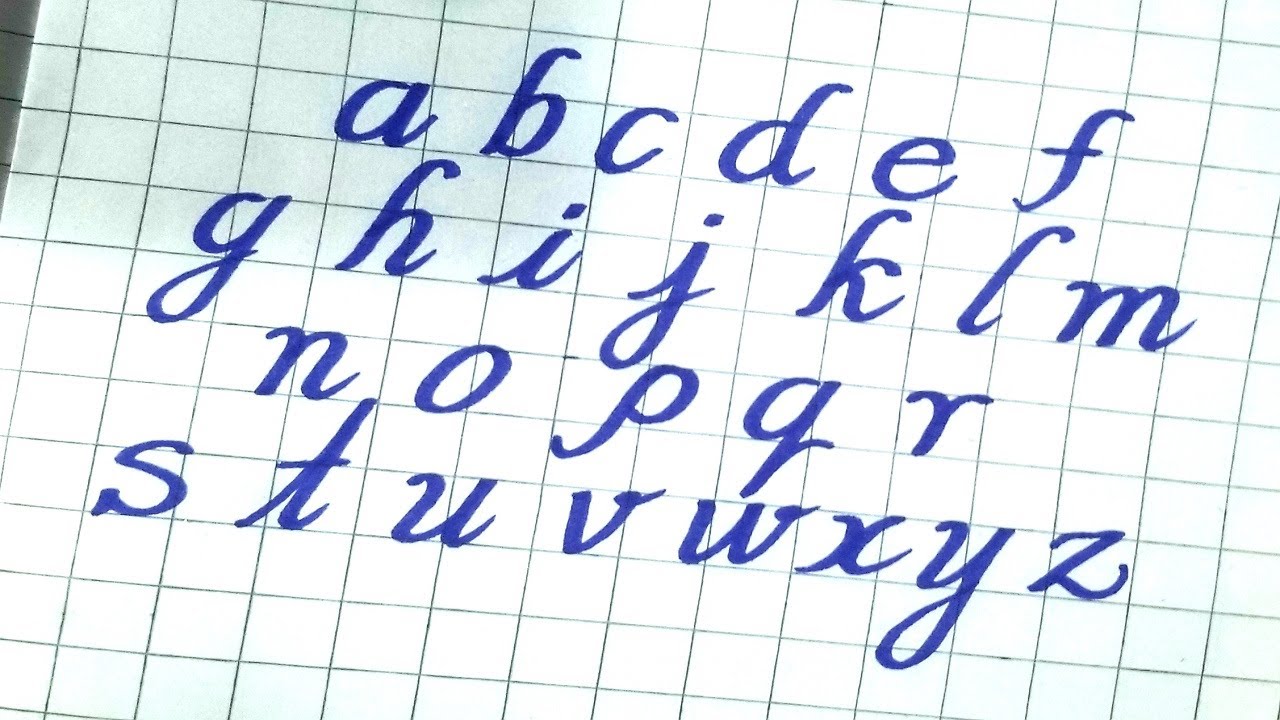 a b c d e f
g h i j k l m
n o p q r
s t u v w x y z